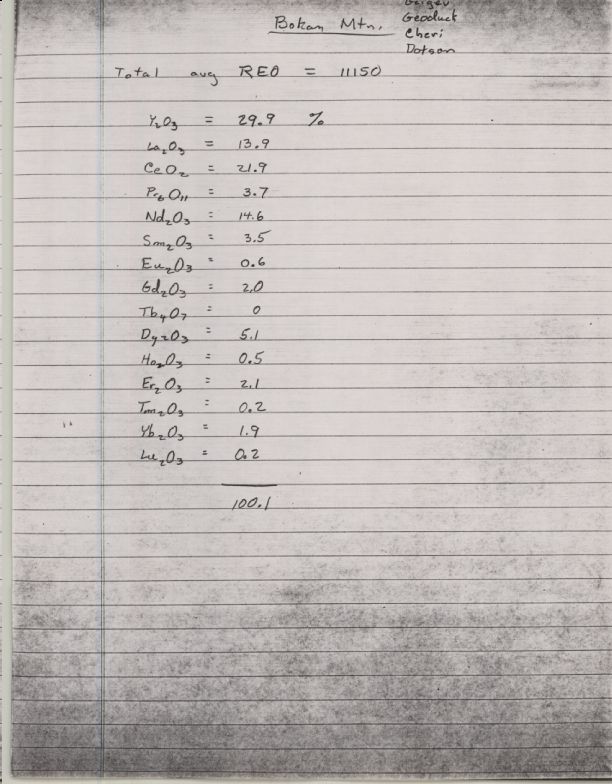 Geiger
Bokan Mtn. Geoduck
Cheri
Dotson
Total avg REO = 11150
Y₂O₃ = 29.9 %
La₂O₃ = 13.9
CeO₂ = 21.9
Pr₆O₁₁ = 3.7
Nd₂O₃ = 14.6
Sm₂O₃ = 3.5
Eu₂O₃ = 0.6
Gd₂O₃ = 2.0
Tb₄O₇ = 0
Dy₂O₃ = 5.1
Ho₂O₃ = 0.5
Er₂O₃ = 2.1
Tm₂O₃ = 0.2
Yb₂O₃ = 1.9
Lu₂O₃ = 0.2
100.1